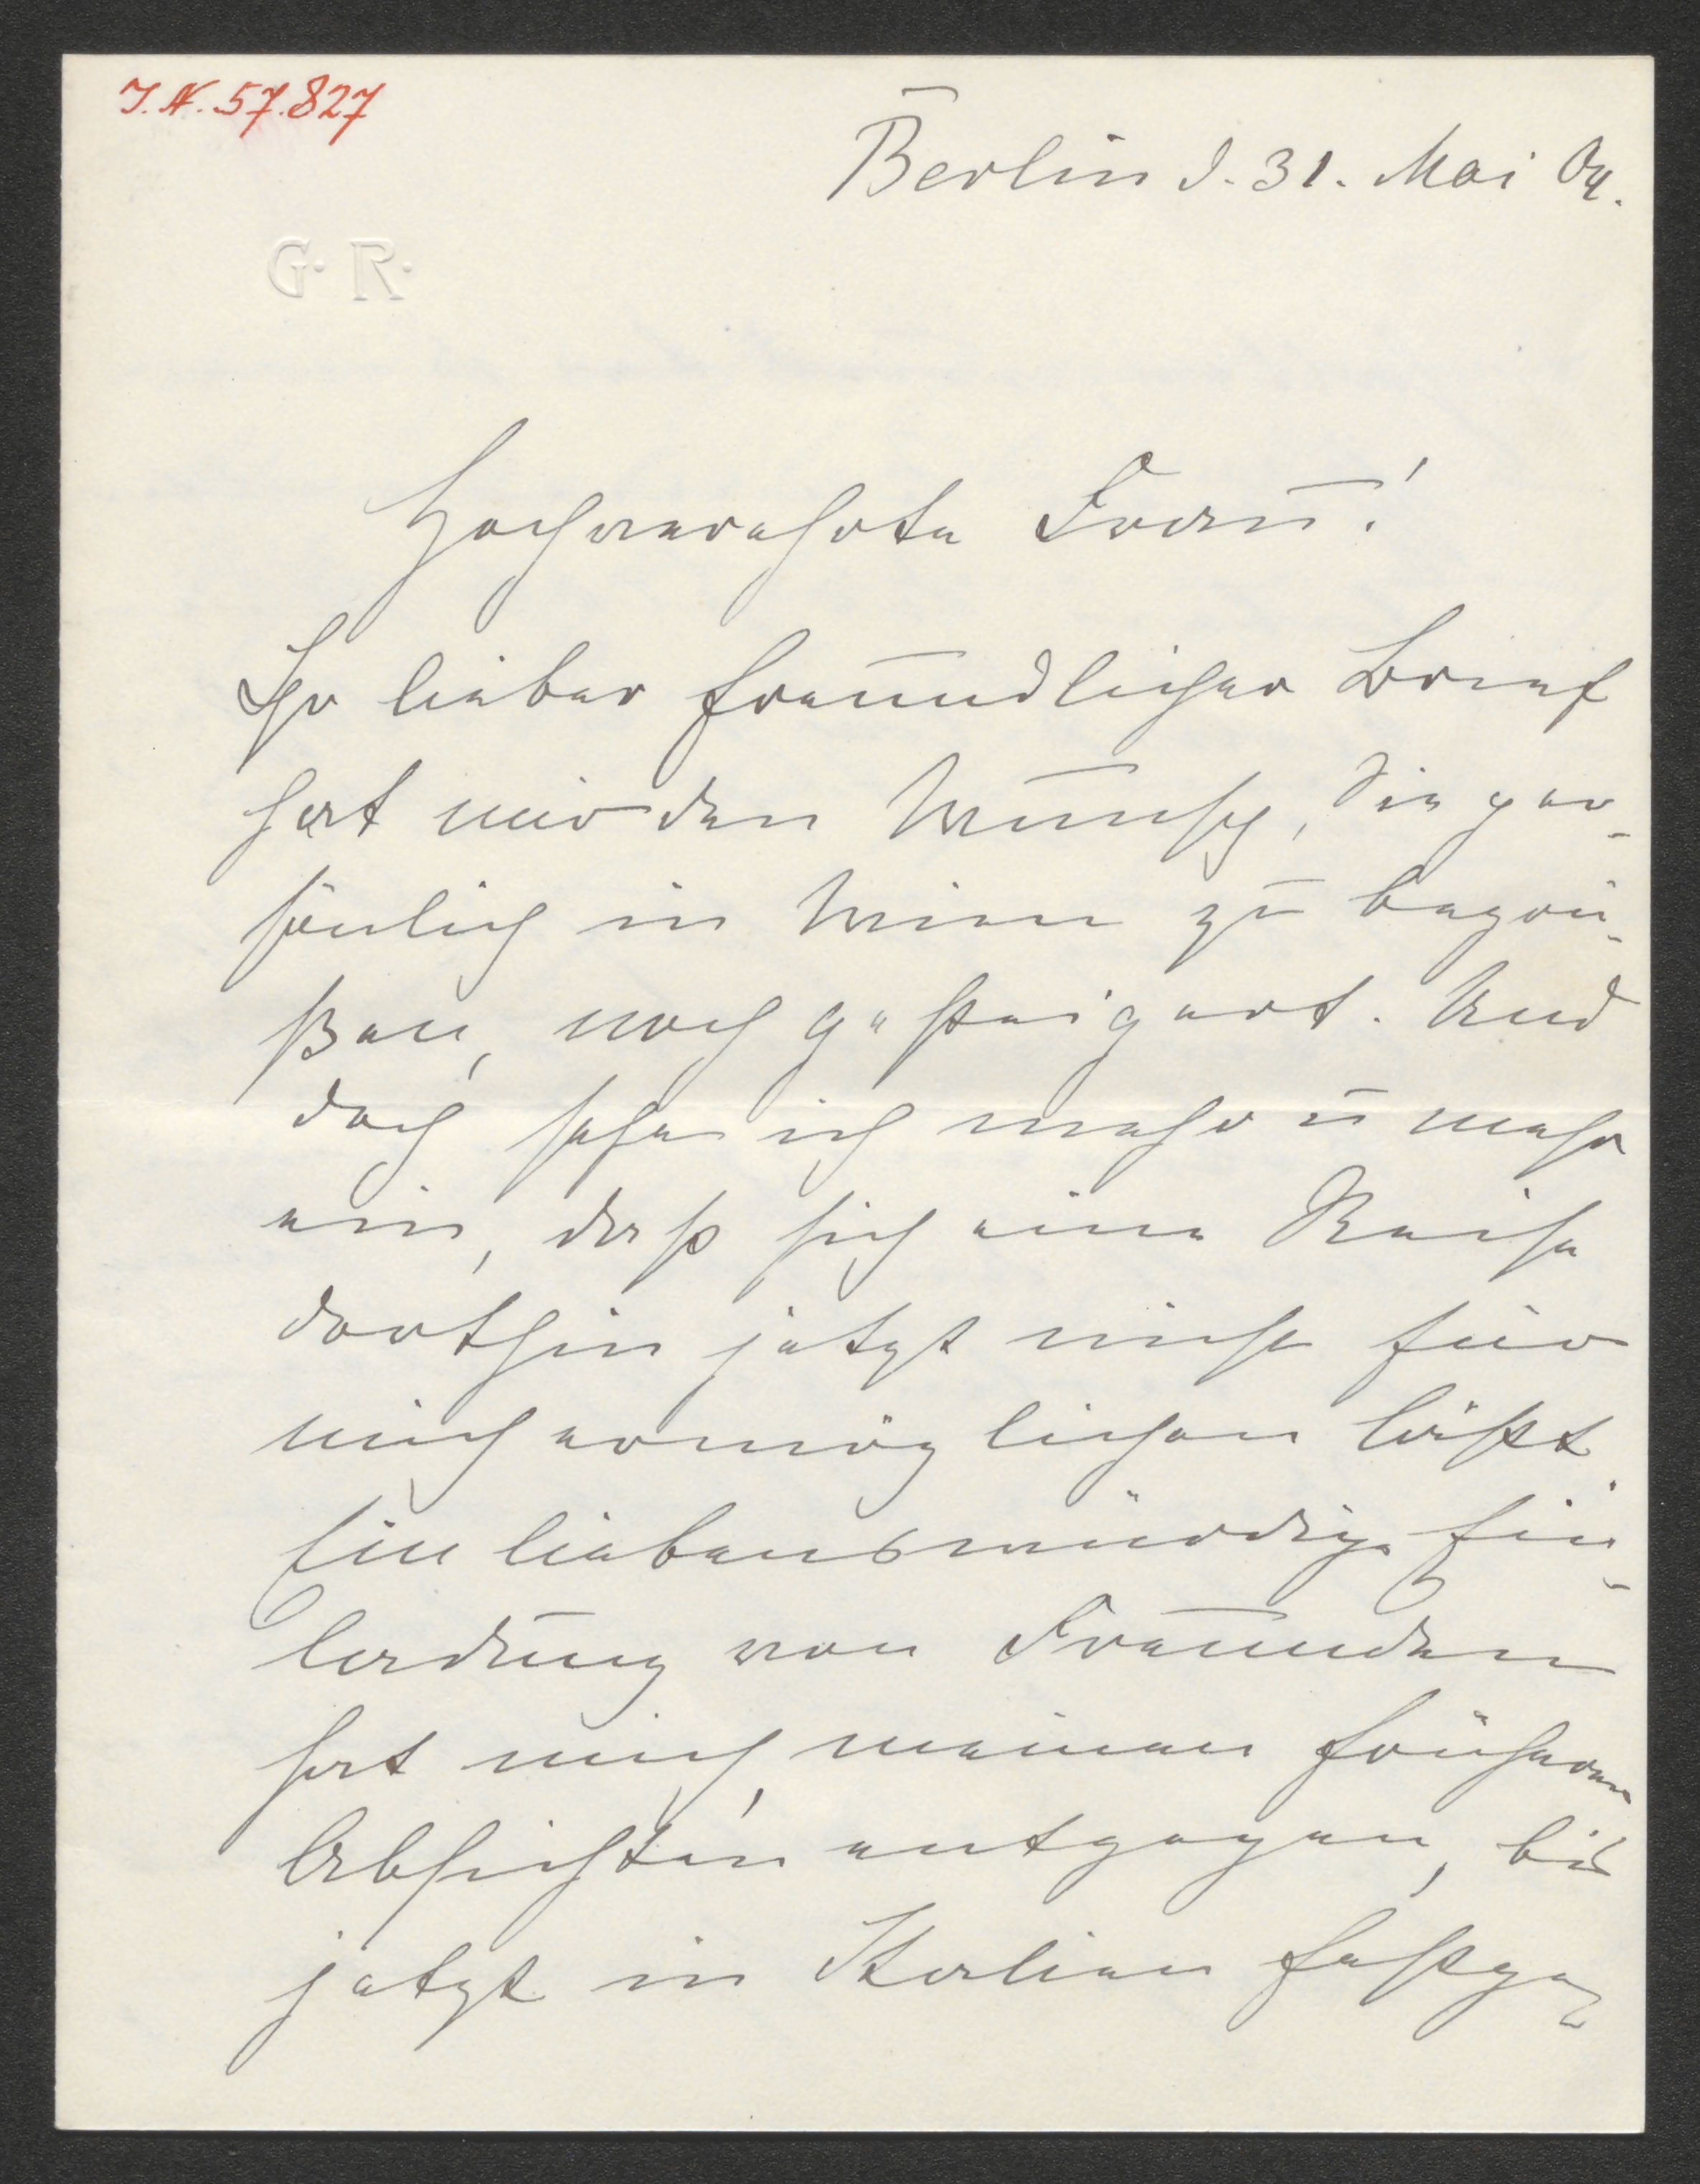 I.N. 57.827
Berlin d. 31. Mai 04.
G. R.
Hochverehrte Frau!
Ihr lieber freundlicher Brief
hat mir den Wunsch, Sie per-
sönlich in Wien zu begrü-
ßen, noch gesteigert. Und
doch sehe ich mehr u mehr
ein, daß sich eine Reise
dorthin jetzt nicht für
mich ermöglichen läßt.
Eine liebenswürdige Ein-
ladung von Freunden
hat mich, meinen früheren
Absichten entgegen, bis
jetzt in Italien festge-